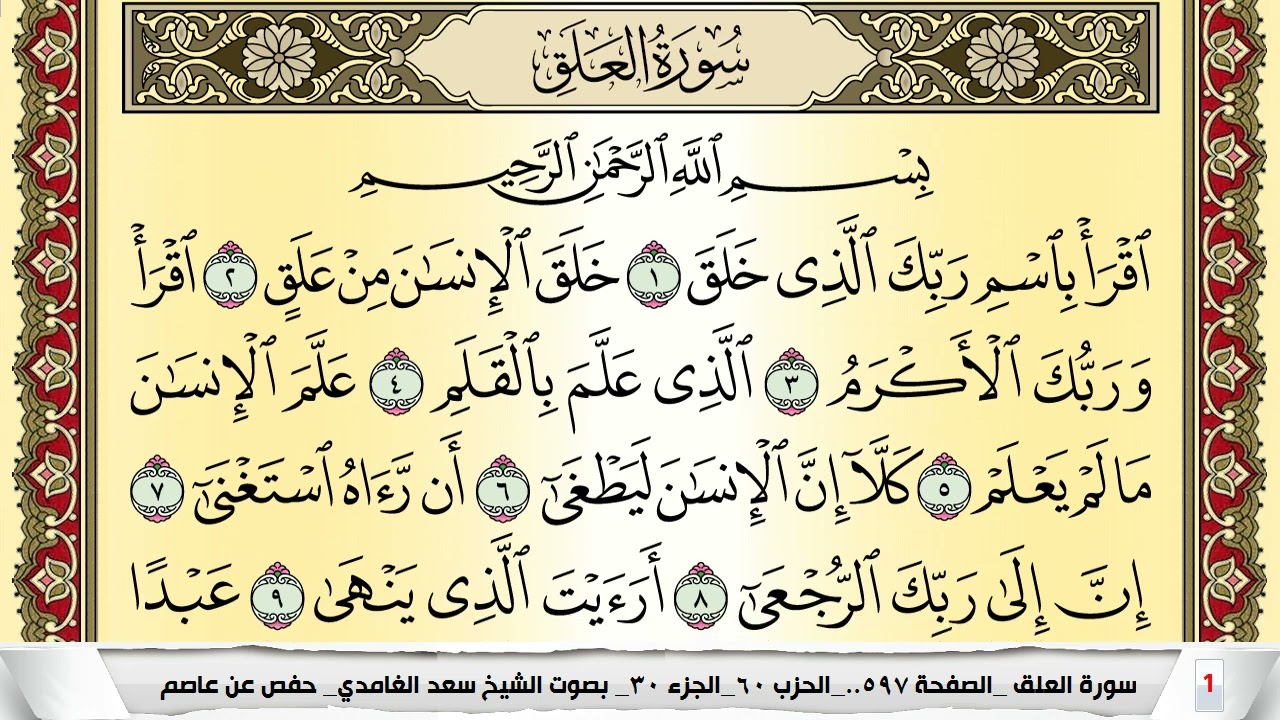 سُورَةُ العَلَقِ
بِسْمِ ٱللَّهِ ٱلرَّحْمَٰنِ ٱلرَّحِيمِ
ٱقْرَأْ بِٱسْمِ رَبِّكَ ٱلَّذِى خَلَقَ ١ خَلَقَ ٱلْإِنسَٰنَ مِنْ عَلَقٍ ٢ ٱقْرَأْ
وَرَبُّكَ ٱلْأَكْرَمُ ٣ ٱلَّذِى عَلَّمَ بِٱلْقَلَمِ ٤ عَلَّمَ ٱلْإِنسَٰنَ
مَا لَمْ يَعْلَمْ ٥ كَلَّآ إِنَّ ٱلْإِنسَٰنَ لَيَطْغَىٰٓ ٦ أَن رَّءَاهُ ٱسْتَغْنَىٰٓ ٧
إِنَّ إِلَىٰ رَبِّكَ ٱلرُّجْعَىٰٓ ٨ أَرَءَيْتَ ٱلَّذِى يَنْهَىٰ ٩ عَبْدًا
1 سورة العلق _الصفحة ٥٩٧.._الحزب ٦٠_الجزء ٣٠_ بصوت الشيخ سعد الغامدي_ حفص عن عاصم